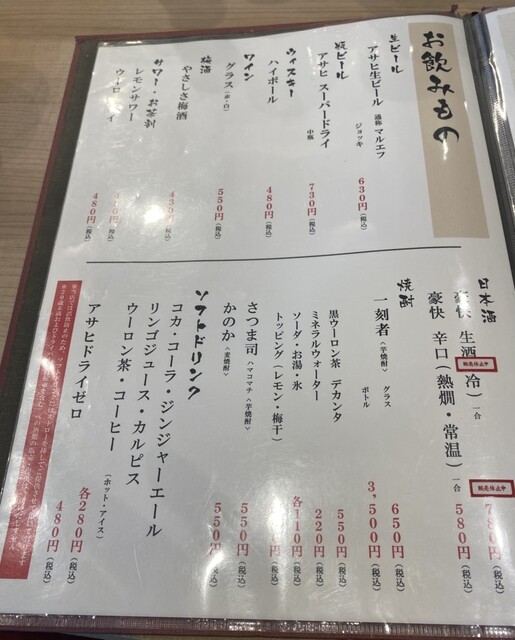 お飲みもの
生ビール
アサヒ生ビール 通称 マルエフ
ジョッキ 630円(税込)
瓶ビール
アサヒ スーパードライ
中瓶 730円(税込)
ウィスキー
ハイボール 480円(税込)
ワイン
グラス(赤・白) 550円(税込)
梅酒
やさしさ梅酒 430円(税込)
サワー・お茶割
レモンサワー
480円(税込)
日本酒
豪快 生酒(冷) 一合 780円(税込)
販売休止中
豪快 辛口(熱燗・常温) 一合 580円(税込)
販売休止中
焼酎
一刻者〈芋焼酎〉 グラス 650円(税込)
ボトル 3,500円(税込)
黒ウーロン茶 デカンタ 550円(税込)
ミネラルウォーター 220円(税込)
ソーダ・お湯・氷 各110円(税込)
トッピング(レモン・梅干)
さつま司 ハマコマチ〈芋焼酎〉 550円(税込)
かのか〈麦焼酎〉 550円(税込)
ソフトドリンク
コカ・コーラ・ジンジャーエール
リンゴジュース・カルピス
ウーロン茶・コーヒー
(ホット・アイス) 各280円(税込)
アサヒドライゼロ 480円(税込)